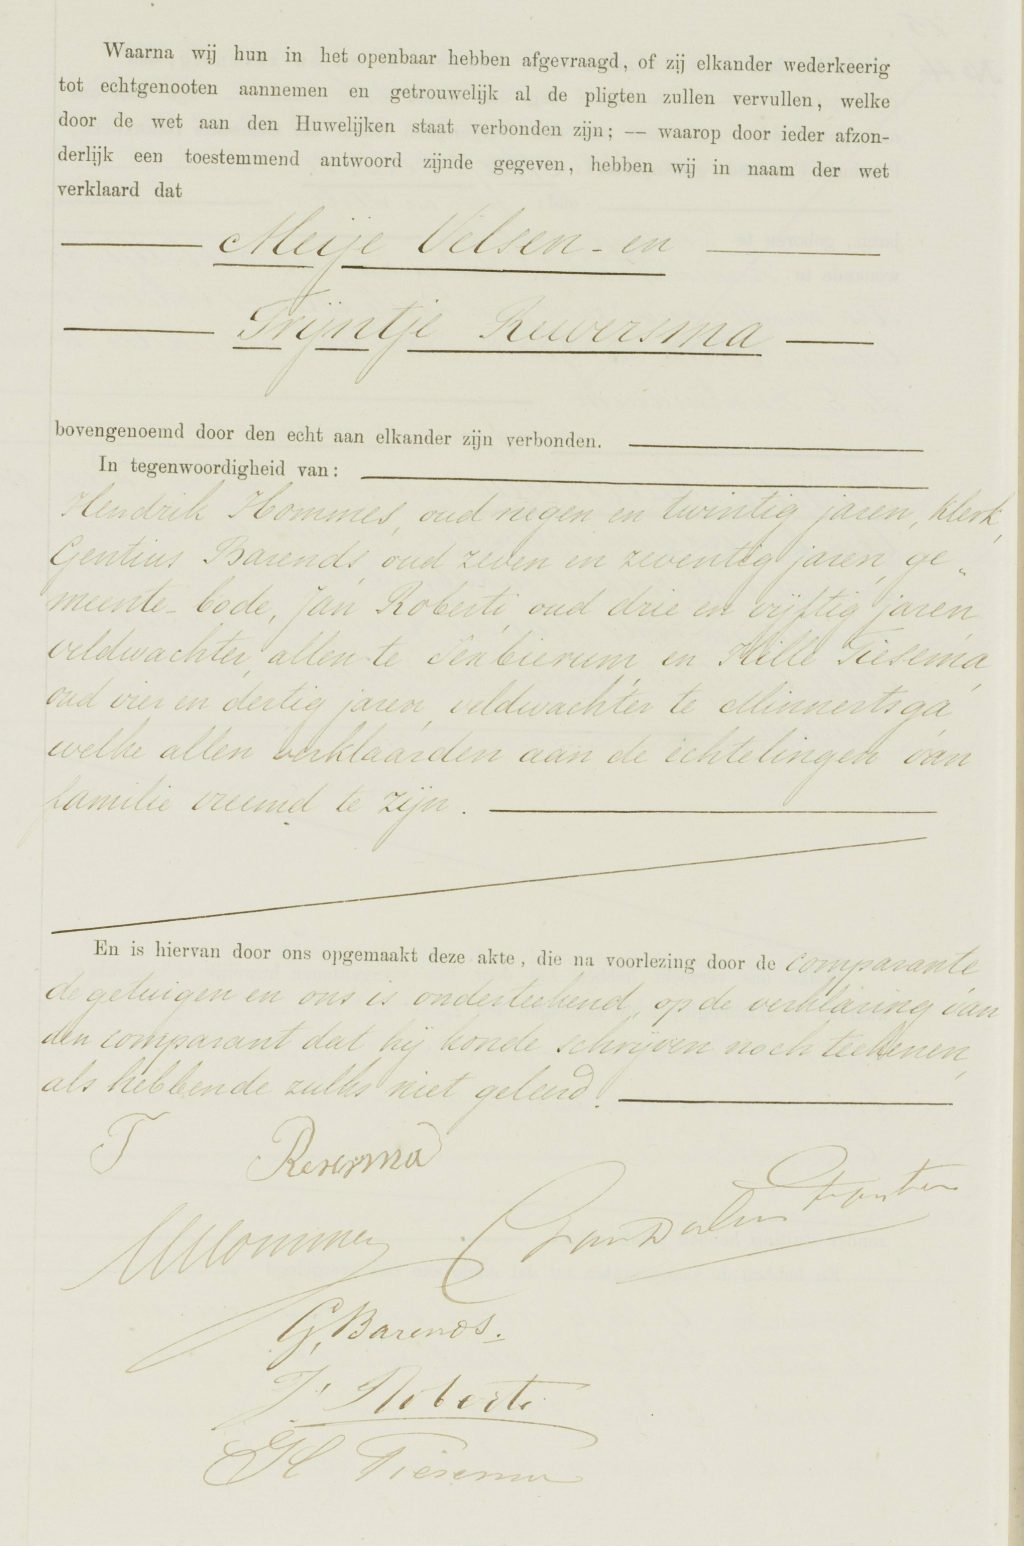 Waarna wij hun in het openbaar hebben afgevraagd, of zij elkander wederkeerig
tot echtgenooten aannemen en getrouwelijk al de pligten zullen vervullen, welke
door de wet aan den Huwelijken staat verbonden zijn; — waarop door ieder afzon-
derlijk een toestemmend antwoord zijnde gegeven, hebben wij in naam der wet
verklaard dat
Meije Velsen - en
Trijntje Reversma
bovengenoemd door den echt aan elkander zijn verbonden.
In tegenwoordigheid van:
Hendrik Hommes, oud negen en twintig jaren, klerk,
Gentius Barends, oud zeven en zeventig jaren, ge„
meente-bode, Jan Roberti, oud drie en vijftig jaren
veldwachter, allen te Sexbierum, en Hille Tiesema,
oud vier en dertig jaren, veldwachter te Minnertsga
welke allen verklaarden aan de echtelingen van
familie vreemd te zijn.
En is hiervan door ons opgemaakt deze akte, die na voorlezing door de comparante
de getuigen en ons is onderteekend, op de verklaring van
den comparant dat hij konde schrijven noch teekenen,
als hebbende zulks niet geleerd.
T Reversma
HHommes
G. Barends.
J. Roberti
H Tiesema